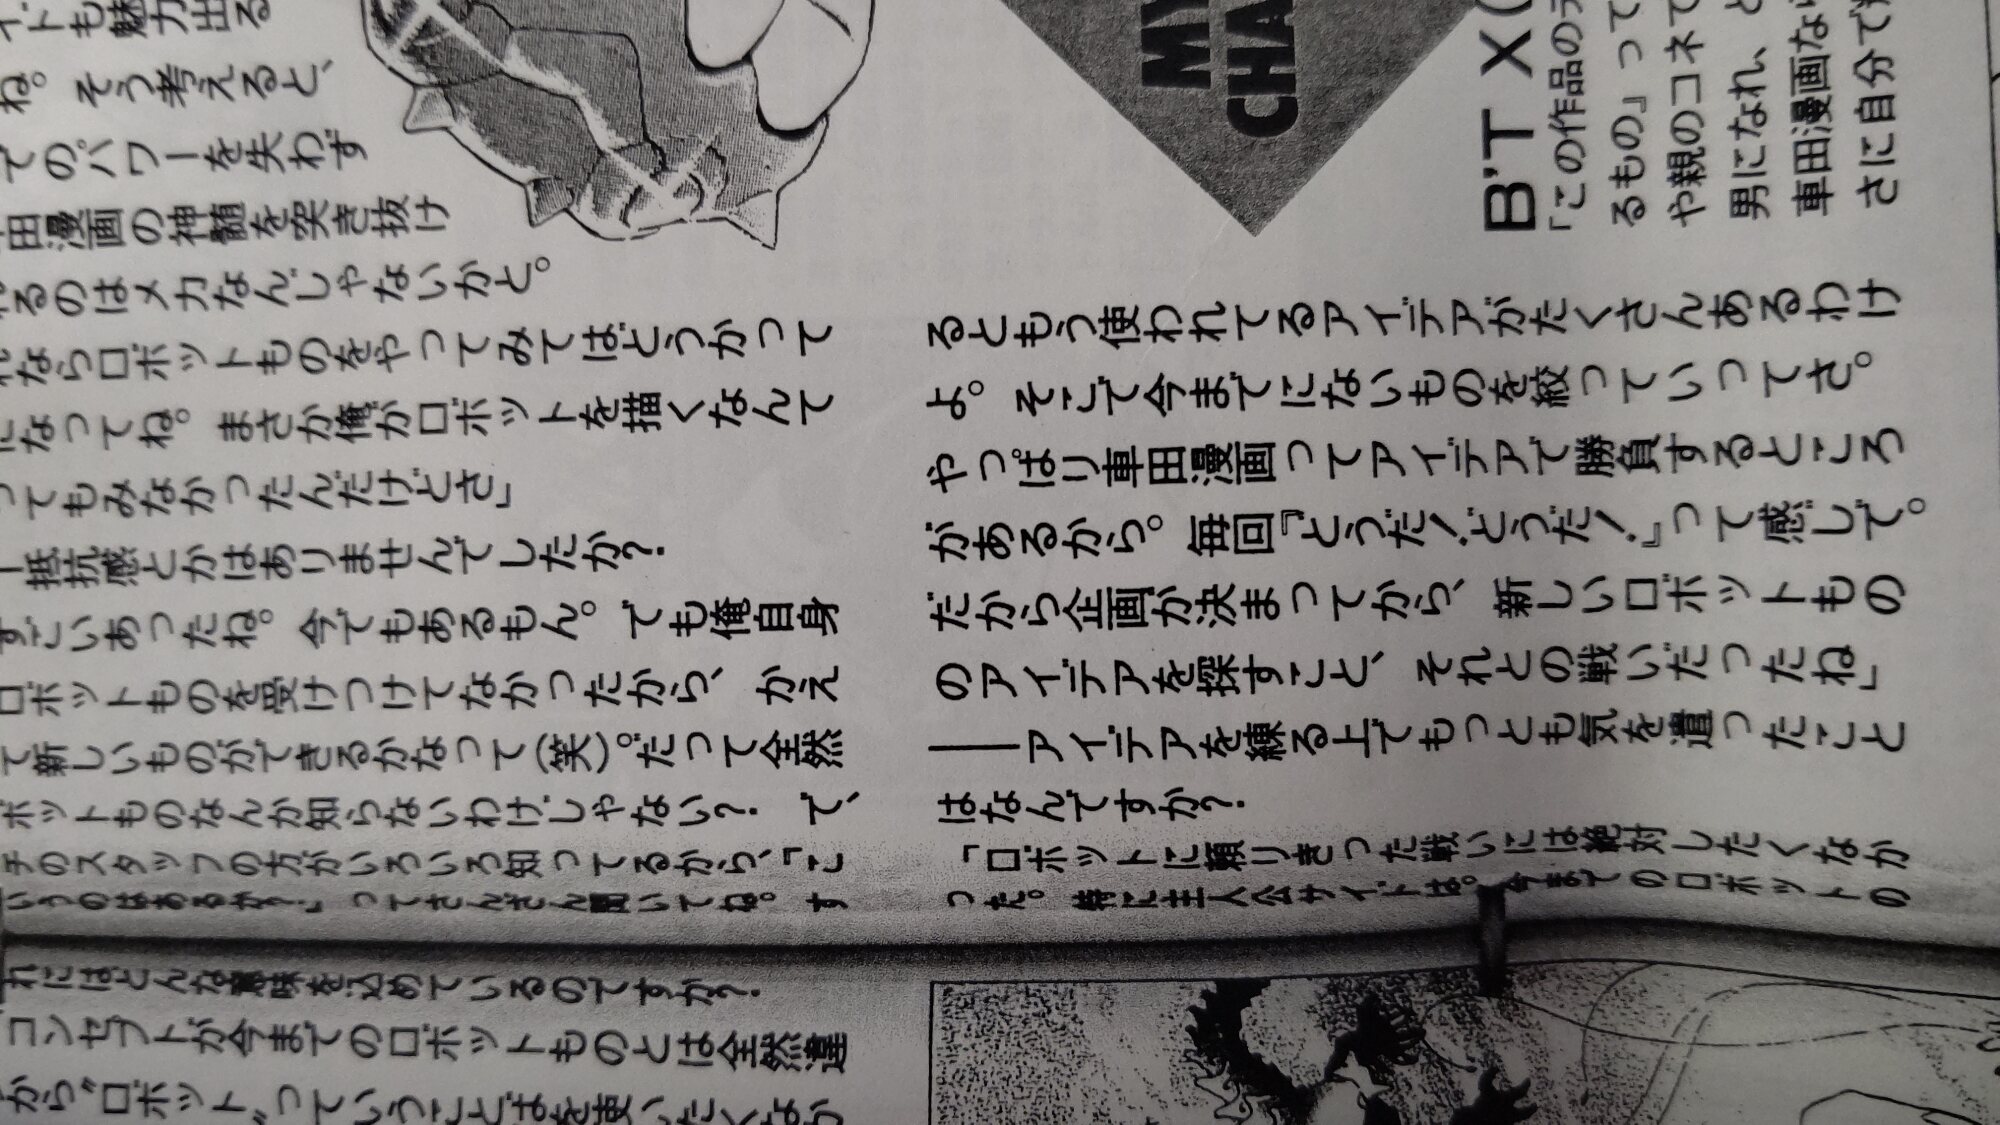 イドも魅力出る
ね。そう考えると、
てのパワーを失わず
田漫画の神髄を突き抜け
るのはメカなんじゃないかと。
ならロボットものをやってみてはどうかって
になってね。まさか俺がロボットを描くなんて
ってもみなかったんだけどさ」
―抵抗感とかはありませんでしたか?
すごいあったね。今でもあるもん。でも俺自身
ロボットものを受けつけてなかったから、かえ
て新しいものができるかなって(笑)。だって全然
ボットものなんか知らないわけじゃない? で、
チのスタッフの方がいろいろ知ってるから、「こ
いうのはあるか?」ってさんざん聞いてね。す
るともう使われてるアイデアがたくさんあるわけ
よ。そこで今までにないものを絞っていってさ。
やっぱり車田漫画ってアイデアで勝負するところ
があるから。毎回『どうだ!どうだ!』って感じで。
だから企画が決まってから、新しいロボットもの
のアイデアを探すこと、それとの戦いだったね」
――アイデアを練る上でもっとも気を遣ったこと
はなんですか?
「ロボットに頼りきった戦いには絶対したくなか
った。特に主人公サイドは。今までのロボットの
MY
CHA
B'T X(
「この作品の
るもの』って
や親のコネで
男になれ、と
車田漫画な
さに自分で
れにはどんな意味を込めているのですか?
コンセプトが今までのロボットものとは全然違
から“ロボット”っていうことばを使いたくなか